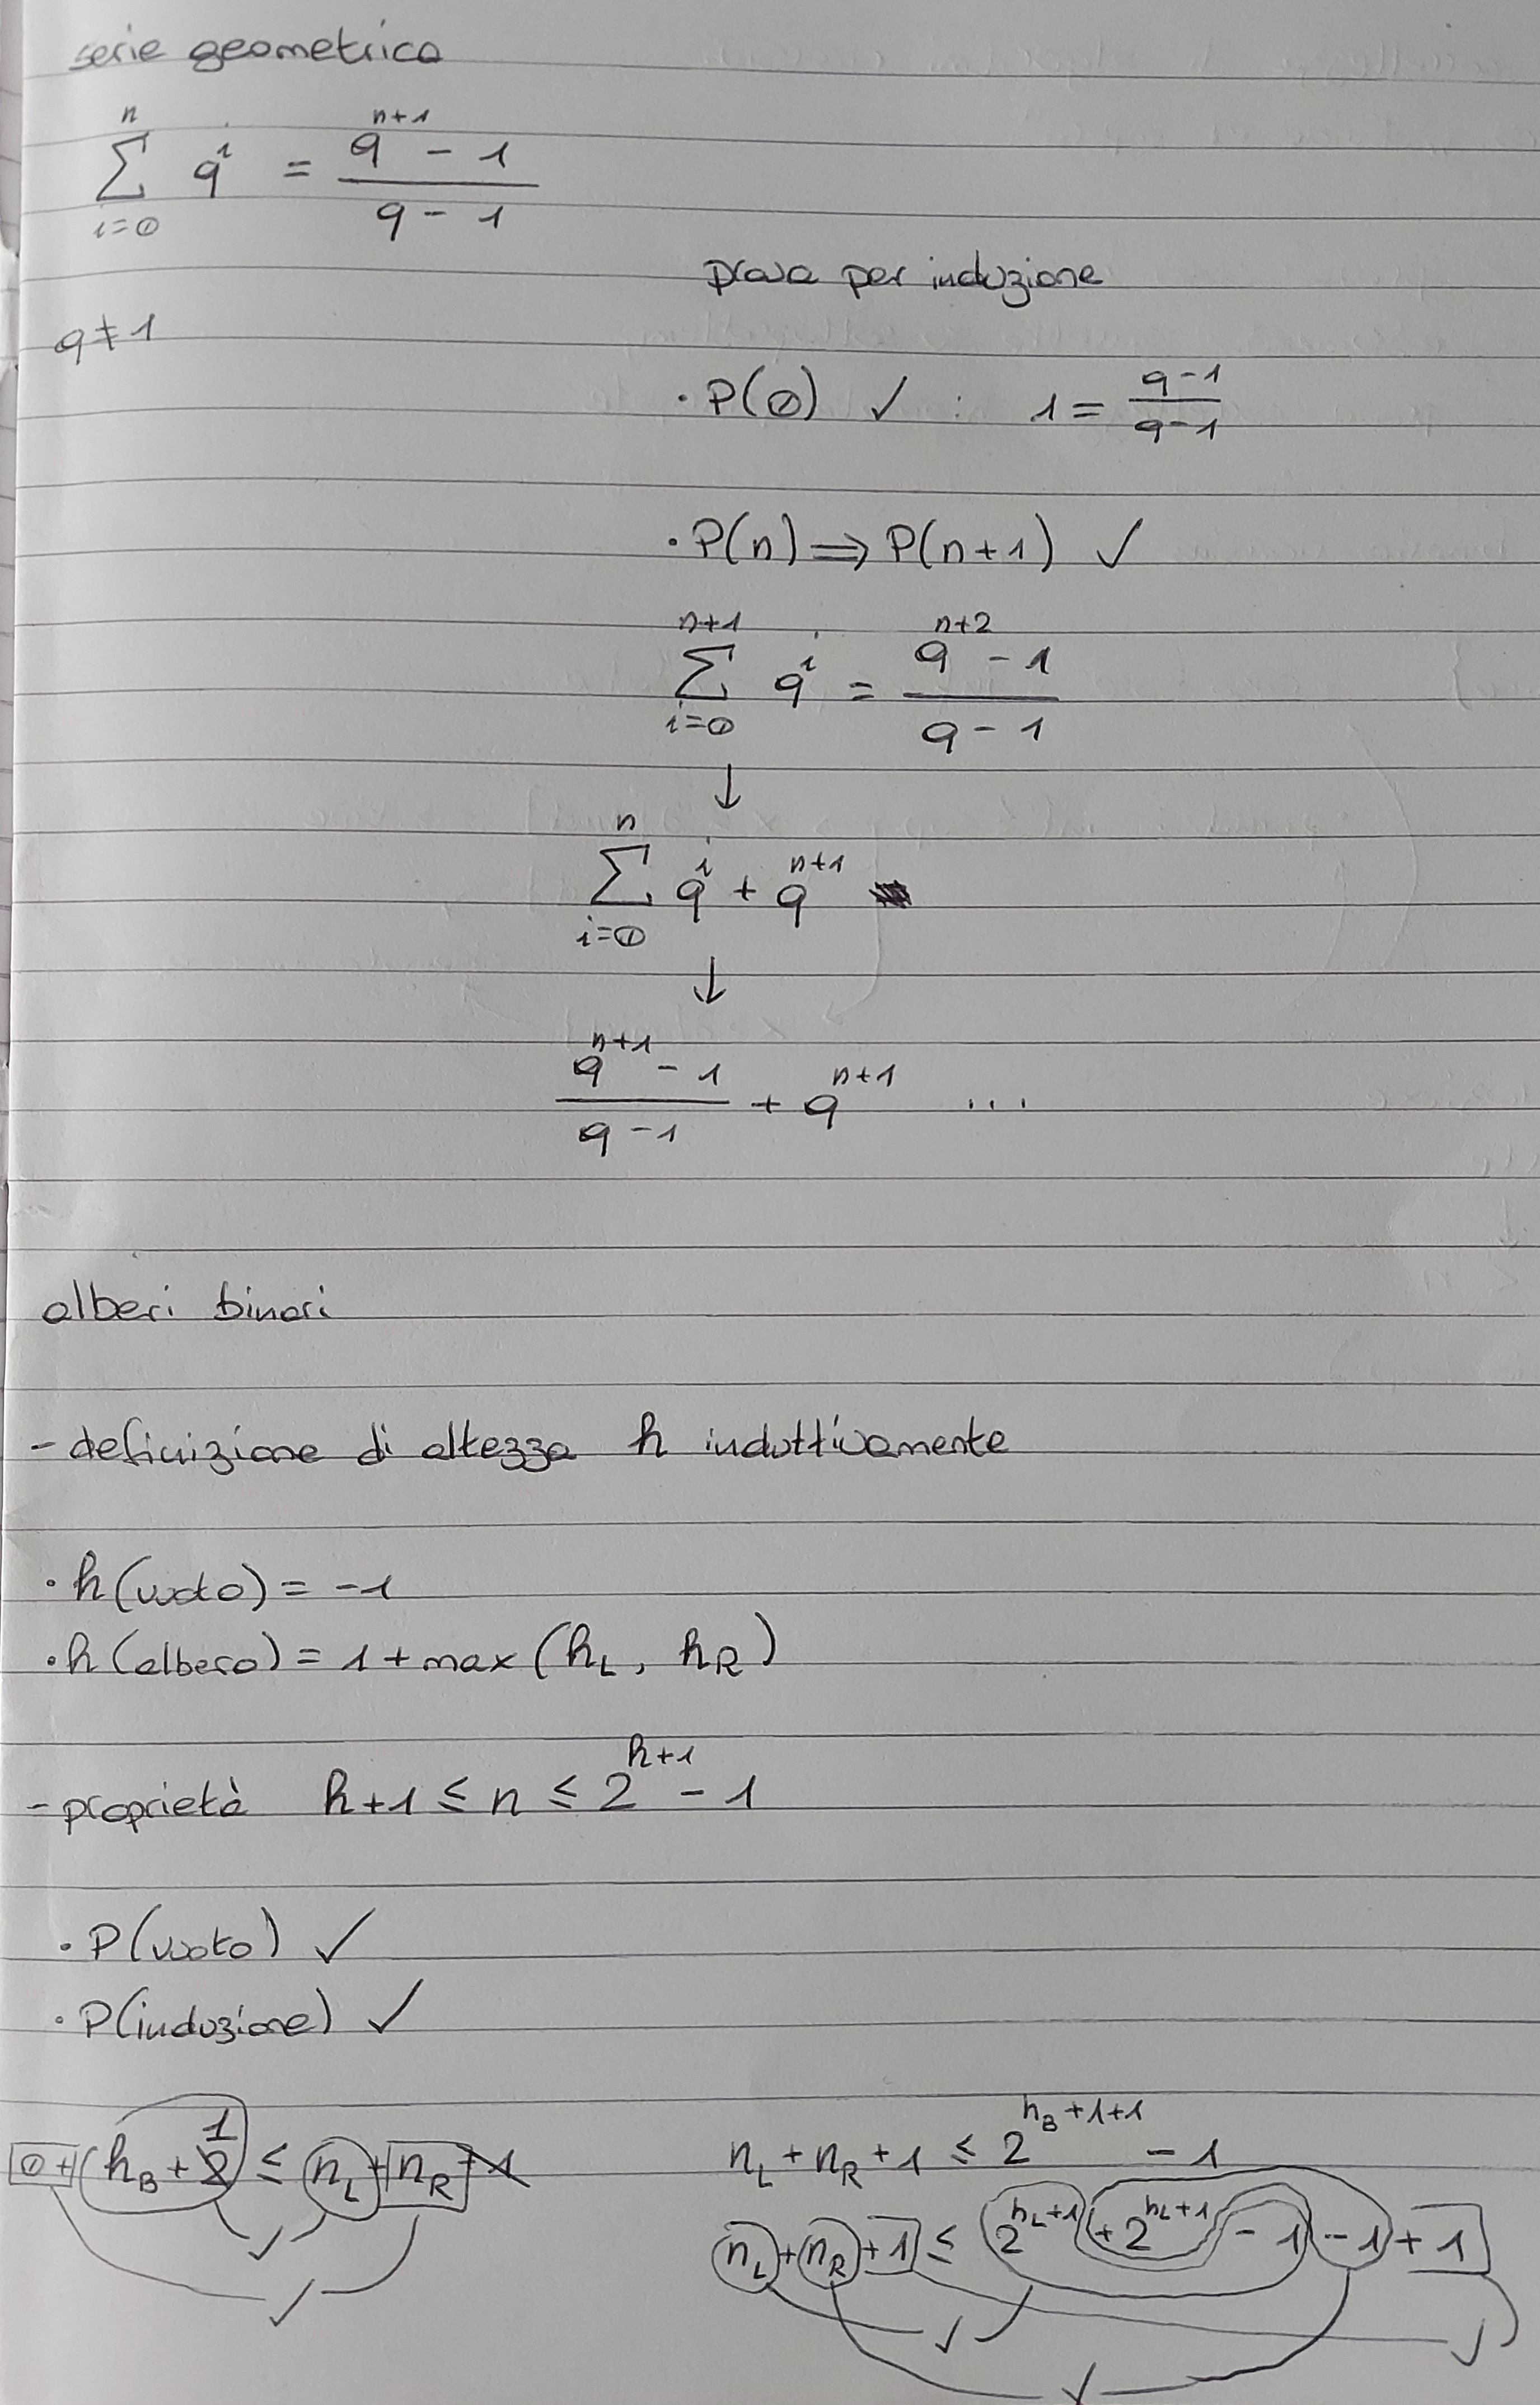 serie geometrica
n
∑ q^i = (q^(n+1) - 1) / (q - 1)
i=0
prova per induzione
q ≠ 1
· P(0) ✓ : 1 = (q-1)/(q-1)
· P(n) ⟹ P(n+1) ✓
n+1
∑ q^i = (q^(n+2) - 1) / (q - 1)
i=0
↓
n
∑ q^i + q^(n+1)
i=0
↓
(q^(n+1) - 1) / (q - 1) + q^(n+1) ...
alberi binari
- definizione di altezza h induttivamente
· h(vuoto) = -1
· h(albero) = 1 + max(h_L, h_R)
- proprietà h+1 ≤ n ≤ 2^(h+1) - 1
· P(vuoto) ✓
· P(induzione) ✓
0 + h_B + 1 ≤ n_L + n_R
n_L + n_R + 1 ≤ 2^(h_B+1+1) - 1
n_L + n_R + 1 ≤ 2^(h_L+1) + 2^(h_L+1) - 1 - 1 + 1